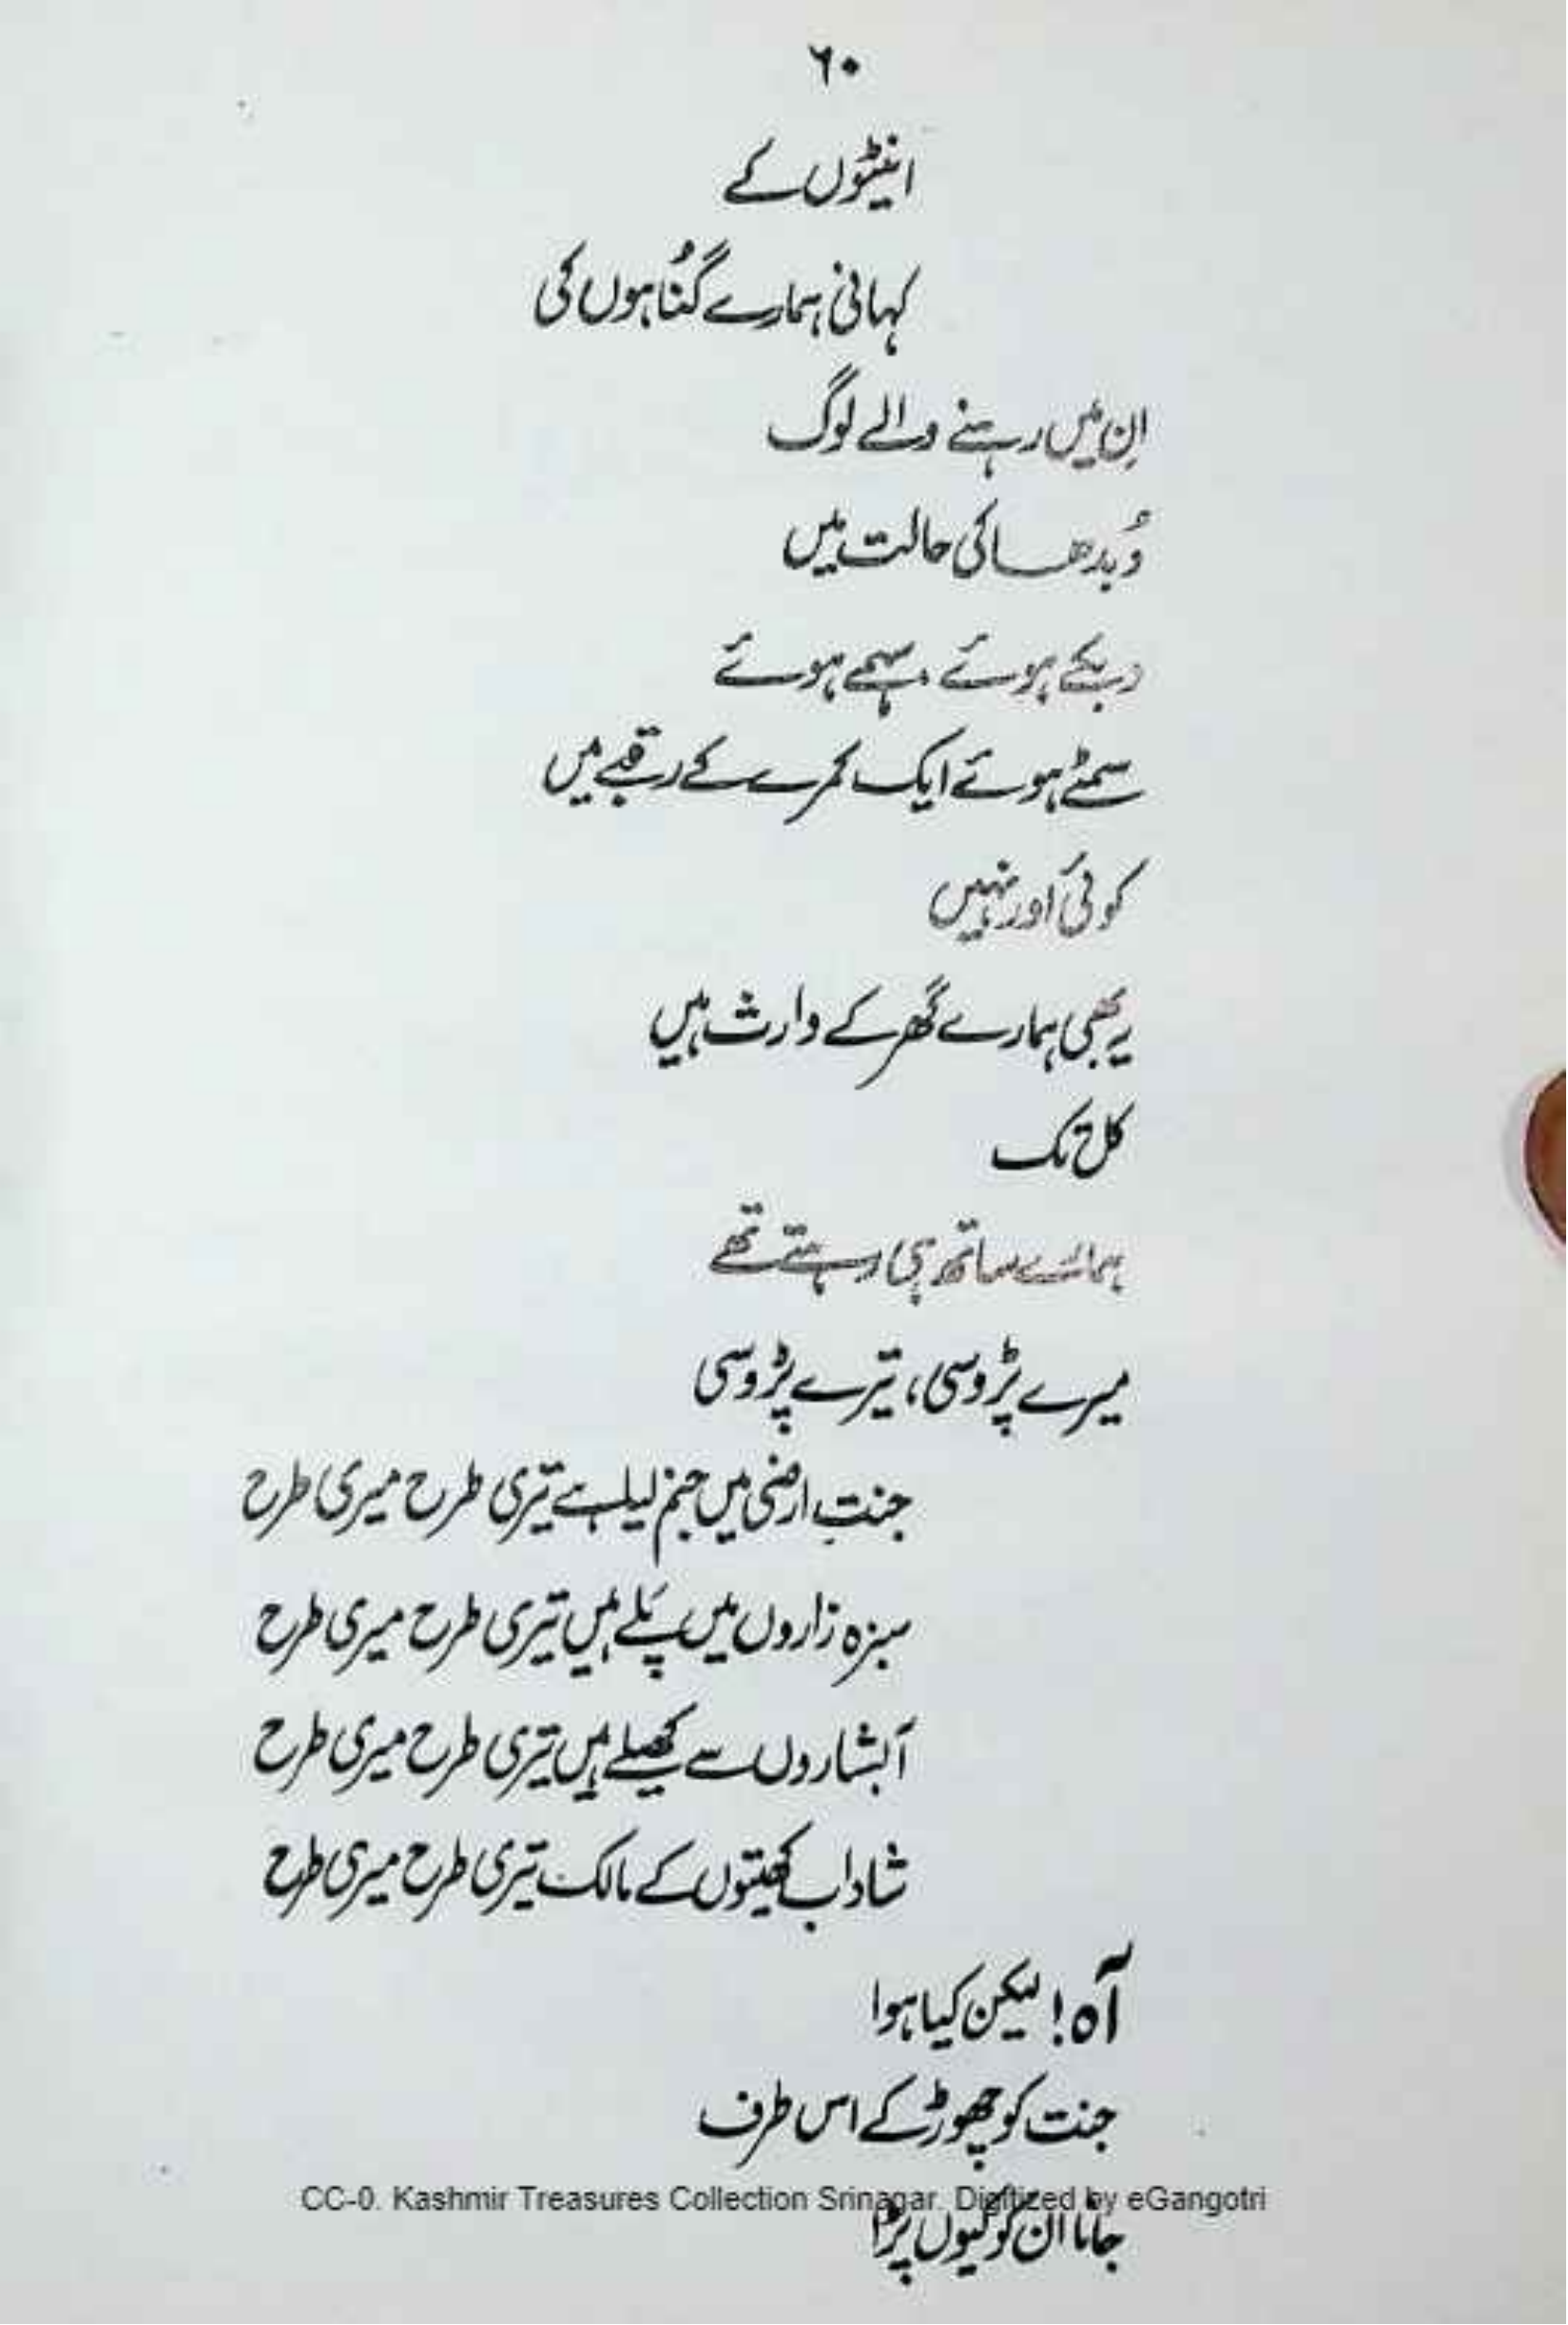 ۶۰
اینٹوں کے
کہانی ہمارے گُناہوں کی
اِن میں رہنے والے لوگ
دُبدھا کی حالت میں
دبکے ہوئے، سہمے ہوئے
سمٹے ہوئے ایک کمرے کے رقبے میں
کوئی اور نہیں
یہ بھی ہمارے گھر کے وارث ہیں
کل تک
ہمارے ساتھ ہی رہتے تھے
میرے پڑوسی، تیرے پڑوسی
جنتِ ارضی میں جنم لیا ہے تیری طرح میری طرح
سبزہ زاروں میں پَلے ہیں تیری طرح میری طرح
آبشاروں سے کھیلے ہیں تیری طرح میری طرح
شاداب کھیتوں کے مالک تیری طرح میری طرح
آہ! لیکن کیا ہوا
جنت کو چھوڑ کے اس طرف
CC-0. Kashmir Treasures Collection Srinagar. Digitized by eGangotri
جانا ان کو کیوں پڑا